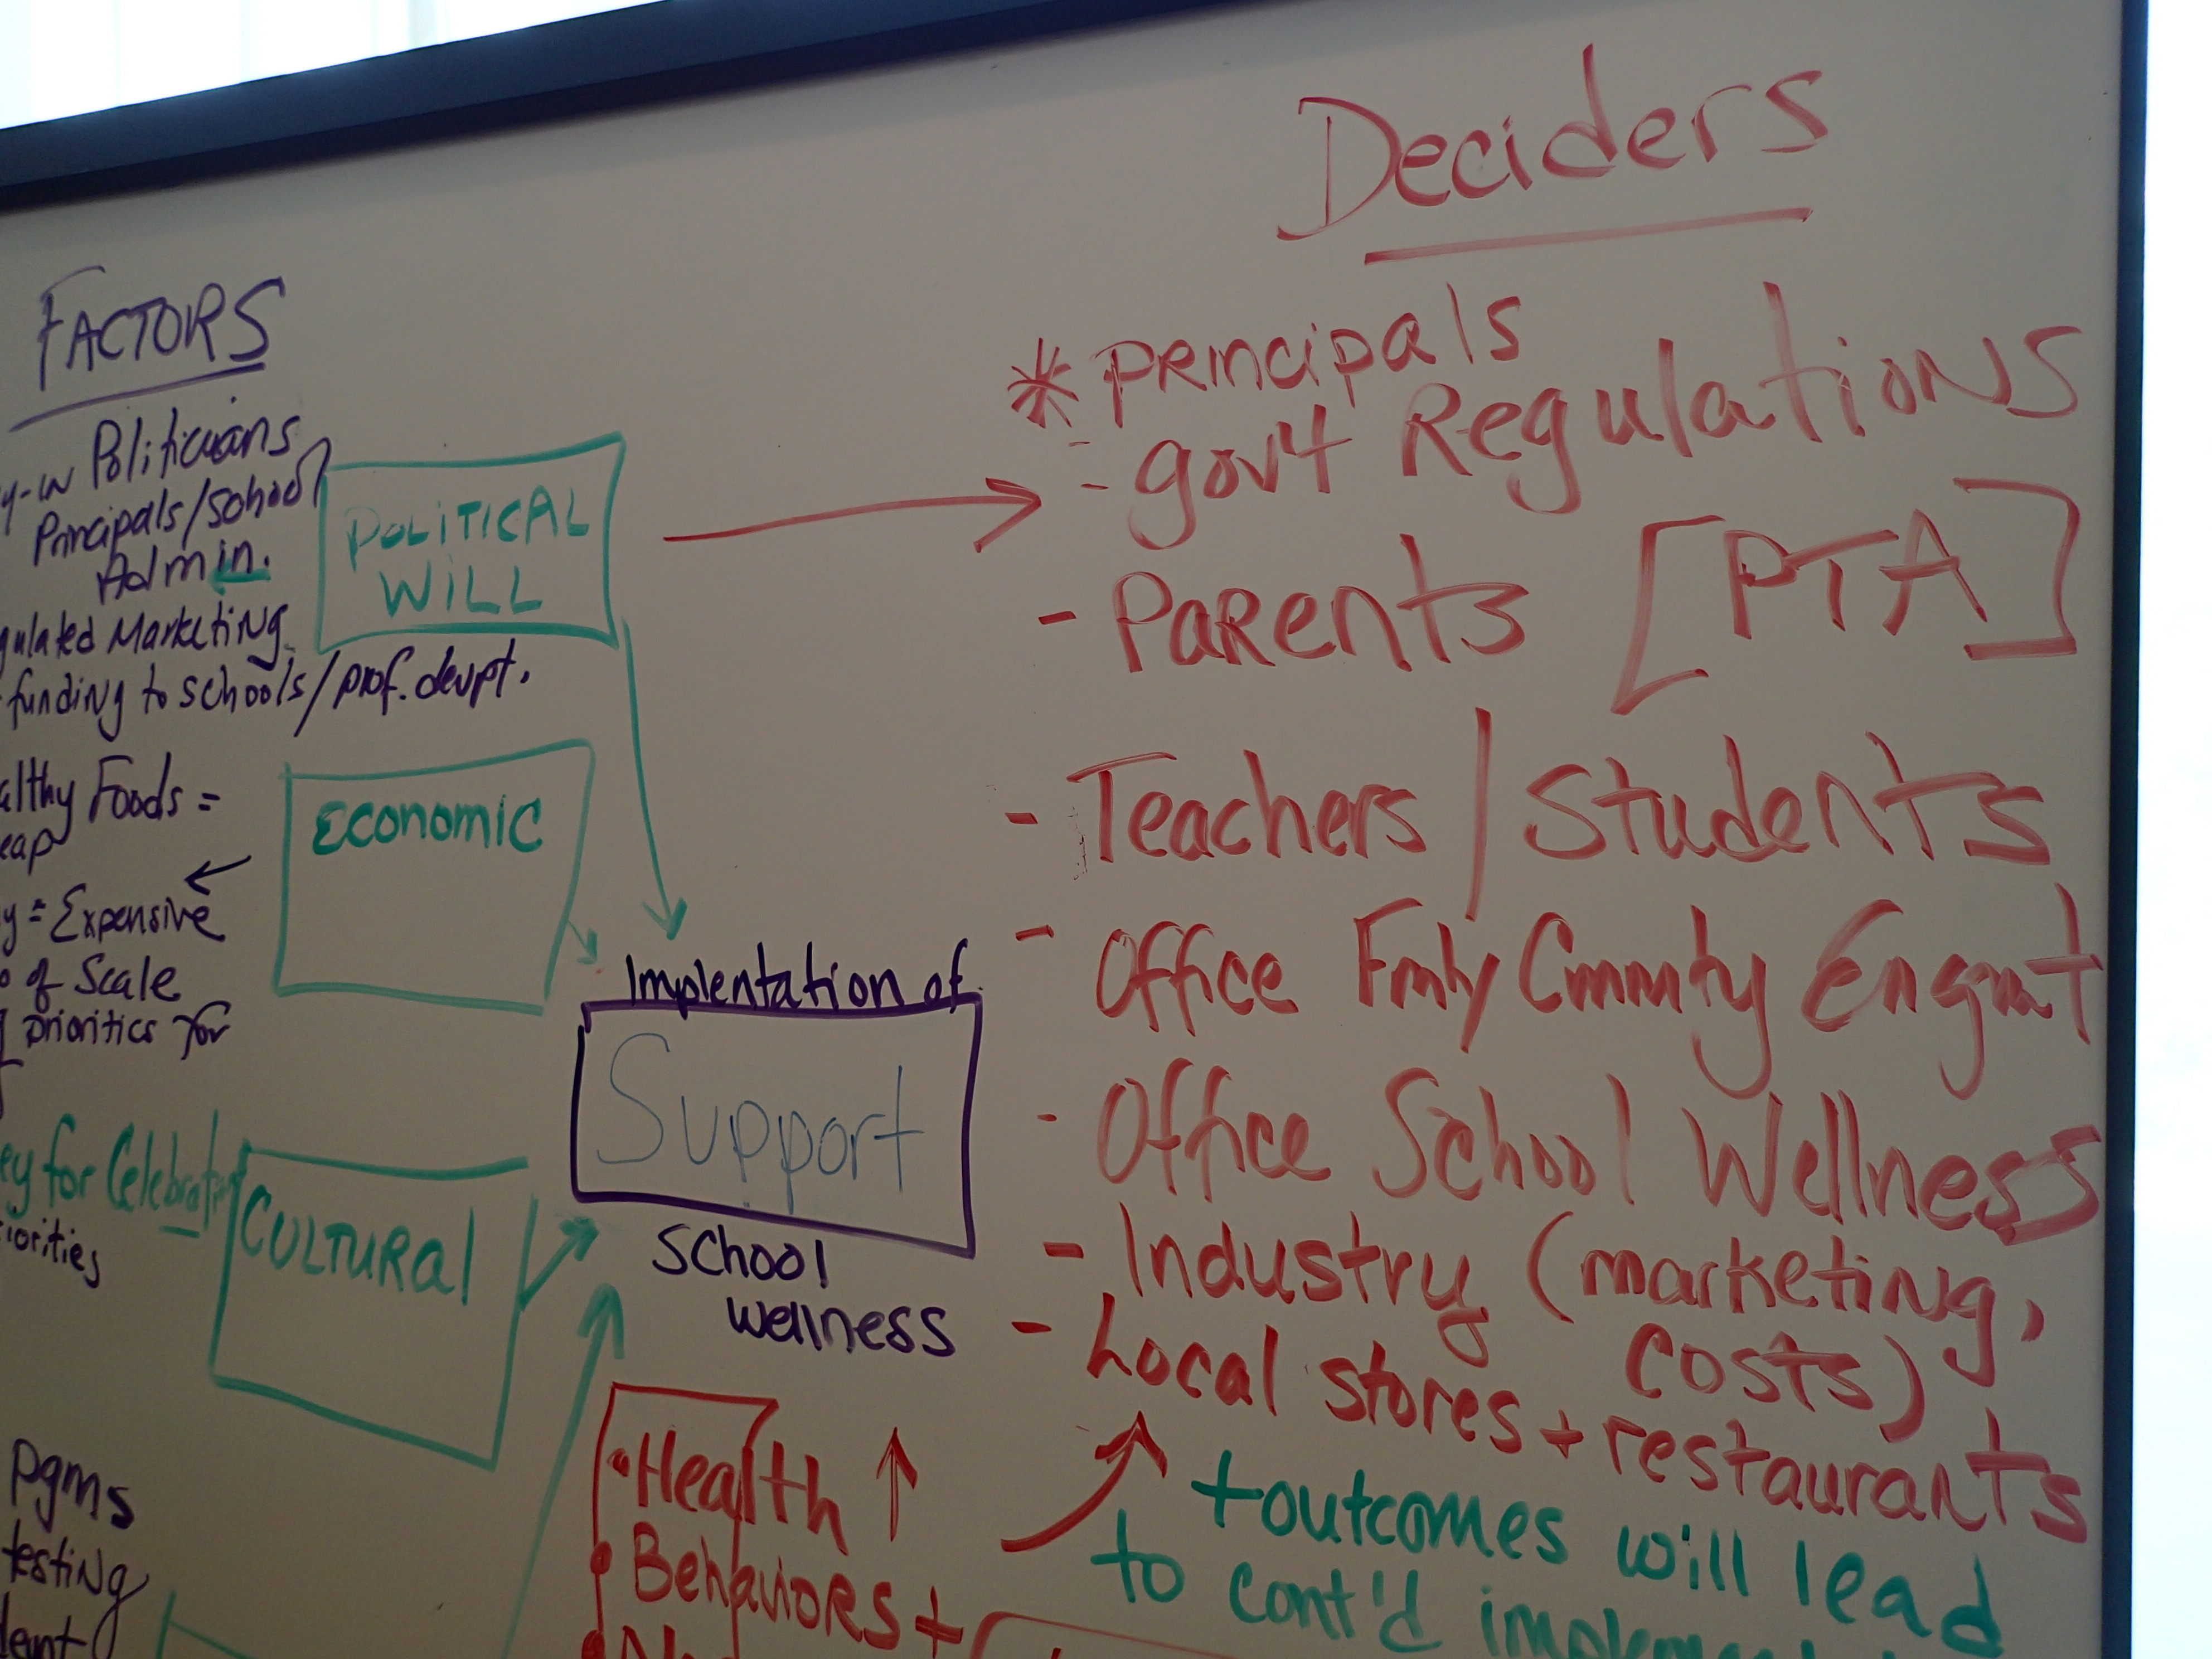 FACTORS
Politicians
Principals/School
Admin.
Marketing
funding to schools/prof. devpt.
Foods =
= Expensive
of Scale
priorities for
for Celebrating
Pgms
testing
POLITICAL
WILL
ECONOMIC
CULTURAL
Implentation of
Support
School
Wellness
Health ↑
Behaviors +
Deciders
* Principals
- gov't Regulations
- Parents [PTA]
- Teachers / Students
- Office Fmly Cmmnty Engmt
- Office School Wellness
- Industry (marketing,
costs)
- Local stores + restaurants
+ outcomes will lead
to cont'd